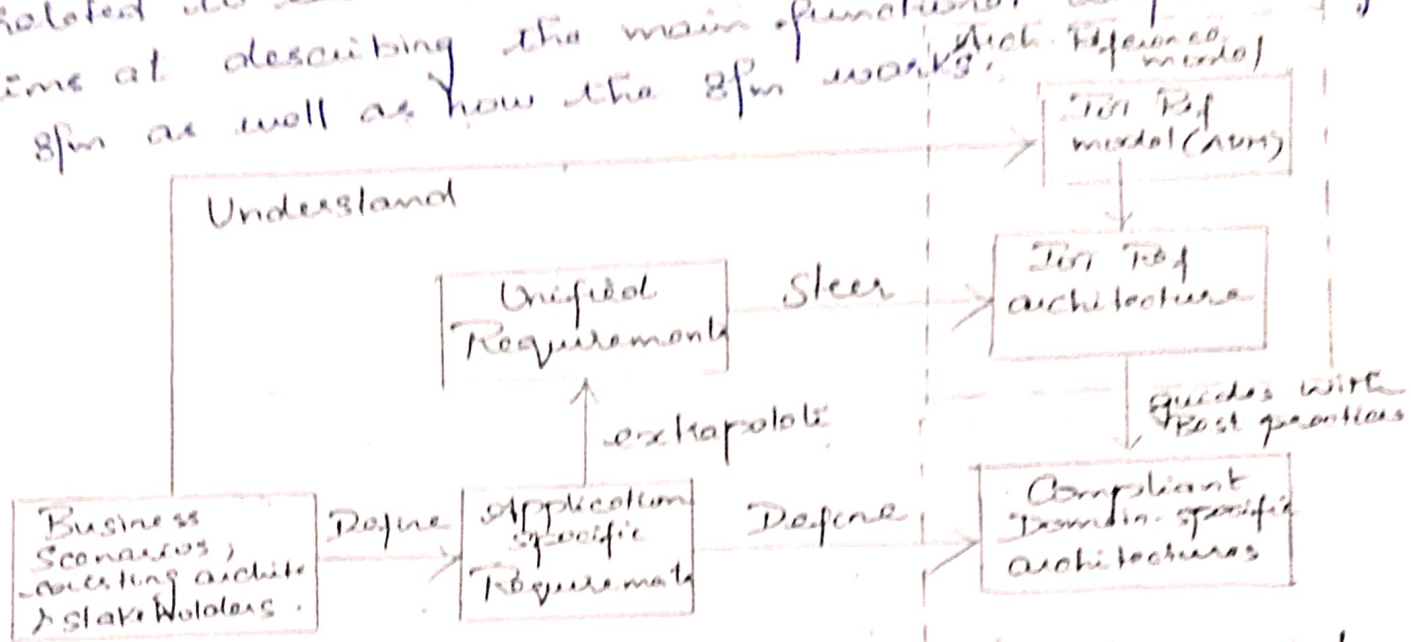 ims at describing the main functional
s/m as well as how the s/m works.
Arch. Reference
model
IoT Ref
model (ARM)
Understand
Unified
Requirements
Steer
IoT Ref
architecture
extrapolate
guides with
Best practices
Business
Scenarios,
existing archite
& stakeholders.
Define
Application
specific
Requirements
Define
Compliant
Domain-specific
architectures